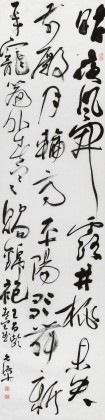 昨夜風開露井桃未央
前殿月輪高平陽歌舞新
承寵簾外春寒賜錦袍
王昌齡